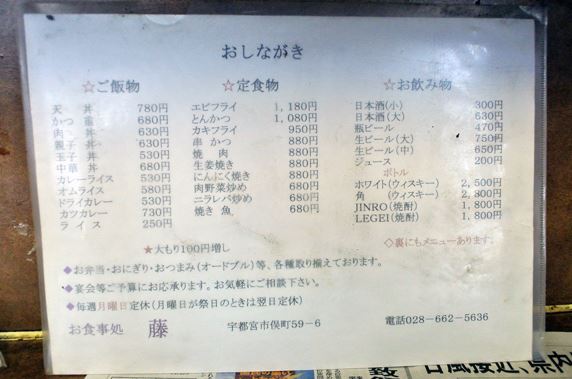 おしながき
☆ご飯物
天丼 780円
かつ重 680円
肉丼 630円
親子丼 630円
玉子丼 530円
中華丼 680円
カレーライス 530円
オムライス 580円
ドライカレー 530円
カツカレー 730円
ライス 250円
☆定食物
エビフライ 1,180円
とんかつ 1,080円
カキフライ 950円
串かつ 880円
焼肉 880円
生姜焼き 880円
にんにく焼き 880円
肉野菜炒め 680円
ニラレバ炒め 680円
焼き魚 680円
☆お飲み物
日本酒(小) 300円
日本酒(大) 530円
瓶ビール 470円
生ビール(大) 750円
生ビール(中) 650円
ジュース 200円
ボトル
ホワイト(ウィスキー) 2,500円
角(ウィスキー) 2,800円
JINRO(焼酎) 1,800円
LEGEI(焼酎) 1,800円
★大もり100円増し
◇裏にもメニューあります。
◆お弁当・おにぎり・おつまみ(オードブル)等、各種取り揃えております。
◆宴会等ご予算にお応承ります。お気軽にご相談下さい。
◆毎週月曜日定休(月曜日が祭日のときは翌日定休)
お食事処 藤 宇都宮市俣町59-6 電話028-662-5636
台風接近、県内